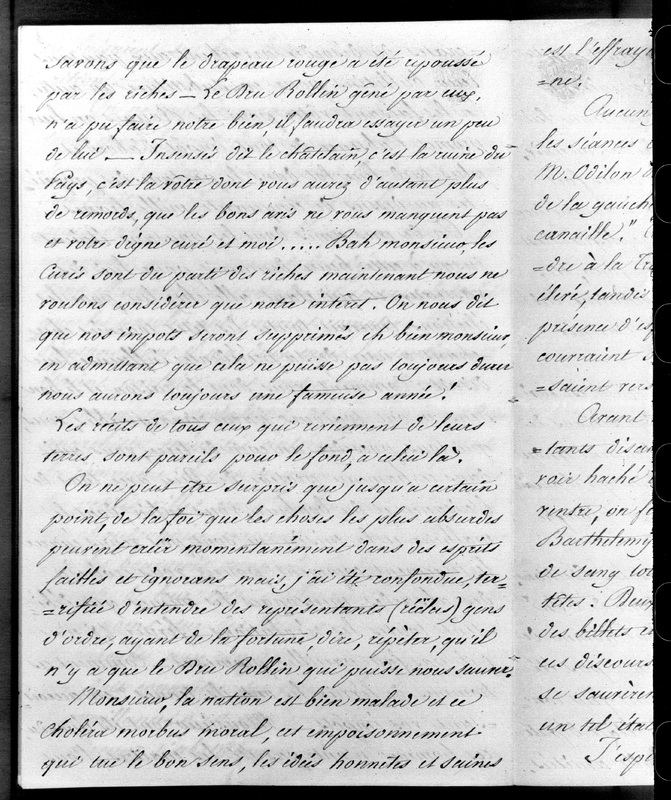 savons que le drapeau rouge a été repoussé
par les riches — Le Dru Rollin gêné par eux,
n'a pu faire notre bien il faudra essayer un peu
de lui — Insensés dit le châtelain c'est la ruine du
Pays, c'est la vôtre dont vous aurez d'autant plus
de remords, que les bons avis ne vous manquent pas
et votre digne curé et moi..... Bah monsieur, les
Curés sont du parti des riches maintenant nous ne
voulons considérer que notre intérêt. On nous dit
que nos impots seront supprimés eh bien monsieur,
en admettant que cela ne puisse pas toujours durer
nous aurons toujours une fameuse année!
Les récits de tous ceux qui reviennent de leurs
terres sont pareils pour le fond, a celui là.
On ne peut être surpris que jusqu'a certain
point, de la foi que les choses les plus absurdes
peuvent créer momentanément dans des esprits
faibles et ignorans mais, j'ai été confondue, ter=
=rifiée d'entendre des représentants (réélus) gens
d'ordre, ayant de la fortune, dire, répéter, qu'il
n'y a que le Dru Rollin qui puisse nous sauver.
Monsieur, la nation est bien malade et ce
Choléra morbus moral, cet empoisonnement
qui tue le bon sens, les idées honnêtes et saines
est l'effray
=ne.
Aucun
les séances
M. Odilon
de la gauche
canaille."
=dre à la Tri
élevé, tandis
présence d'es
couvraient
=saient vers
Avant
=tants disai
voir haché
rentre, on f
Barthelemy
de sang
têtes. Deux
des billets
ces discours
se sauvèren
un tel état
J'esp